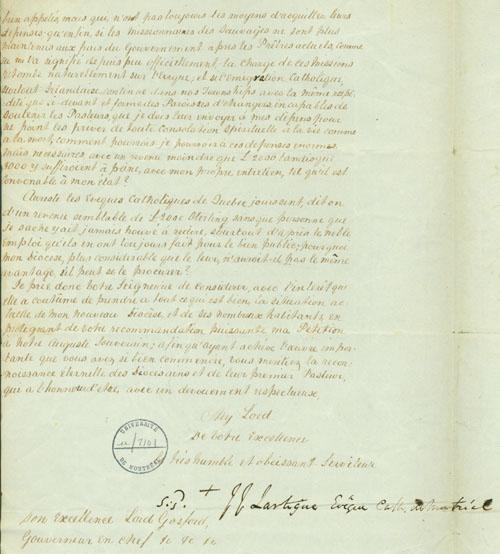 bien appelés, mais qui, n'ont pas toujours les moyens d'acquitter leurs
dépenses; qu'enfin, si les missionnaires des Sauvages ne sont plus
maintenus aux frais du Gouvernement après les Prêtres actuels, comme
on me l'a signifié depuis peu officiellement, la charge de ces Missions
retombe naturellement sur l'Evêque, et si l'émigration Catholique,
surtout Irlandaise continue dans nos Townships avec la même rapi-
dité que ci-devant et forme des Paroisses d'étrangers incapables de
soutenir les Pasteurs, que je dois leur envoyer à mes dépens pour
ne point les priver de toute consolation spirituelle à la vie comme
à la mort, comment pourrais-je pourvoir à ces dépenses énormes
mais nécessaires avec un revenu moindre que £2000 tandis qu'
1000 y suffiroient à peine, avec mon propre entretien, tel qu'il est
convenable à mon état?
Au reste les Evêques Catholiques de Québec jouissent, dit on
d'un revenu semblable de £2000 Sterling sans que personne que
je sache y ait jamais trouvé à redire, surtout d'après le noble
Emploi qu'ils en ont toujours fait pour le bien public; pourquoi
mon diocèse, plus considérable que le leur, n'auroit-il pas le même
avantage s'il peut se le procurer?
Je prie donc Votre Seigneurie de considérer, avec l'intérêt qu'
elle a coûtume de prendre à tout ce qui est bien, la situation ac-
tuelle de mon nouveau Diocèse, et de ses nombreux habitants, en
protegeant de votre recommandation puissante ma Pétition
à notre auguste Souverain; afin qu'ayant achevé l'œuvre impor-
tante que vous avez si bien commencée, vous méritiez la recon-
noissance éternelle des Diocésains et de leur premier Pasteur,
qui a l'honneur d'être, avec un dévouement respectueux,
My Lord
De Votre Excellence
le très humble et obéissant Serviteur
UNIVERSITÉ
DE MONTRÉAL
sig. + J J Lartigue Evêque Cath. de Montréal
Son Excellence Lord Gosford,
Gouverneur en chef &c &c &c